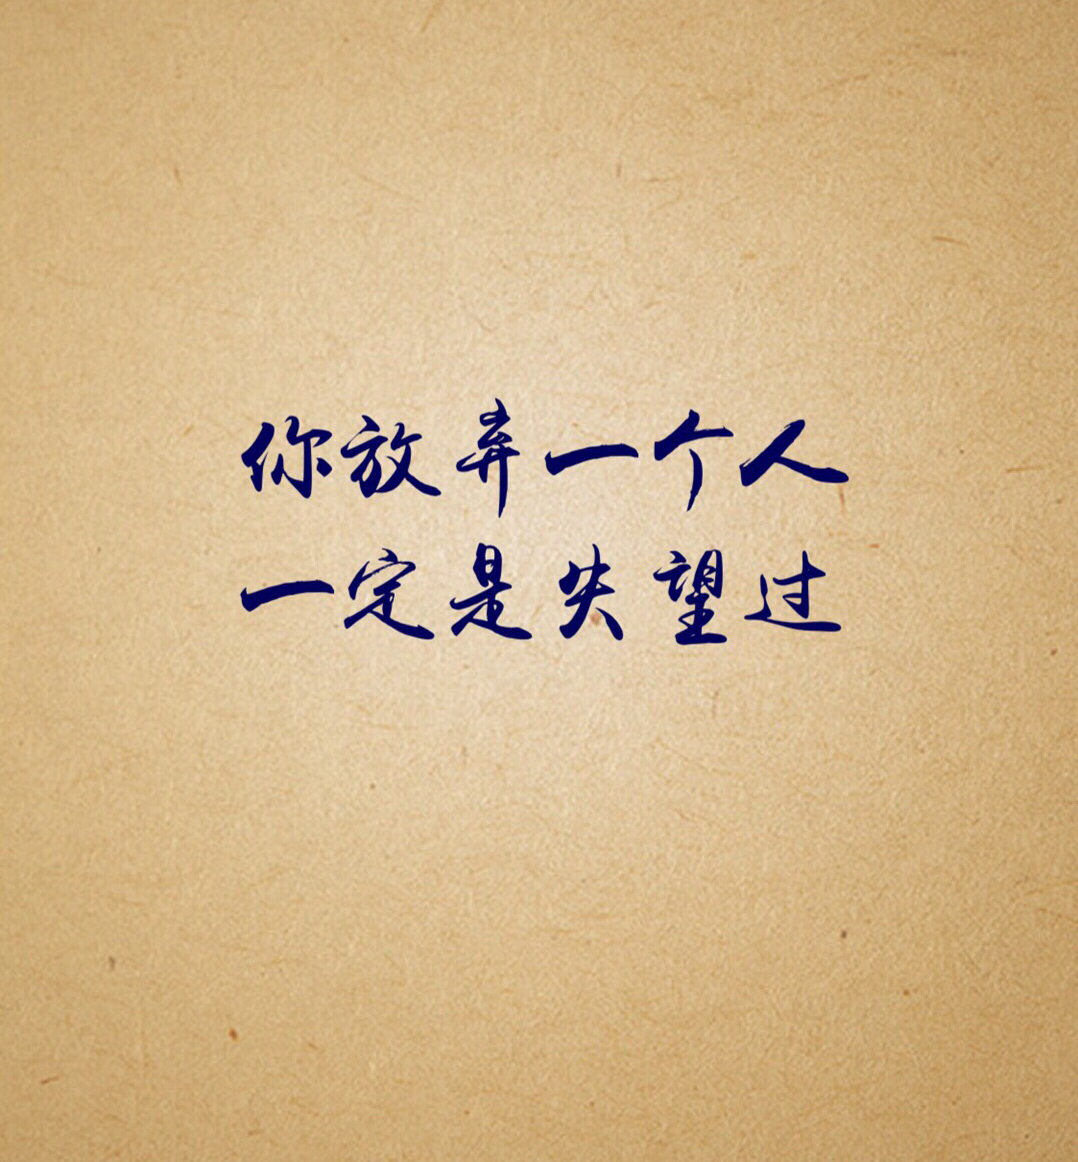 你放弃一个人
一定是失望过